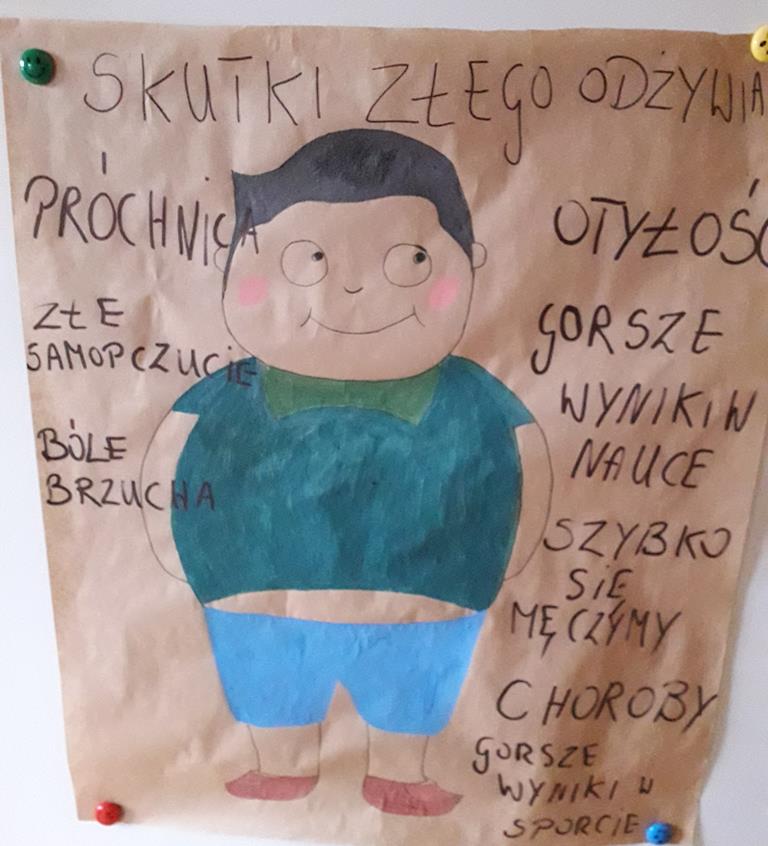 SKUTKI ZŁEGO ODŻYWIA
PRÓCHNICA
ZŁE
SAMOPCZUCIE
BÓLE
BRZUCHA
OTYŁOŚĆ
GORSZE
WYNIKI W
NAUCE
SZYBKO
SIĘ
MĘCZYMY
CHOROBY
GORSZE
WYNIKI W
SPORCIE